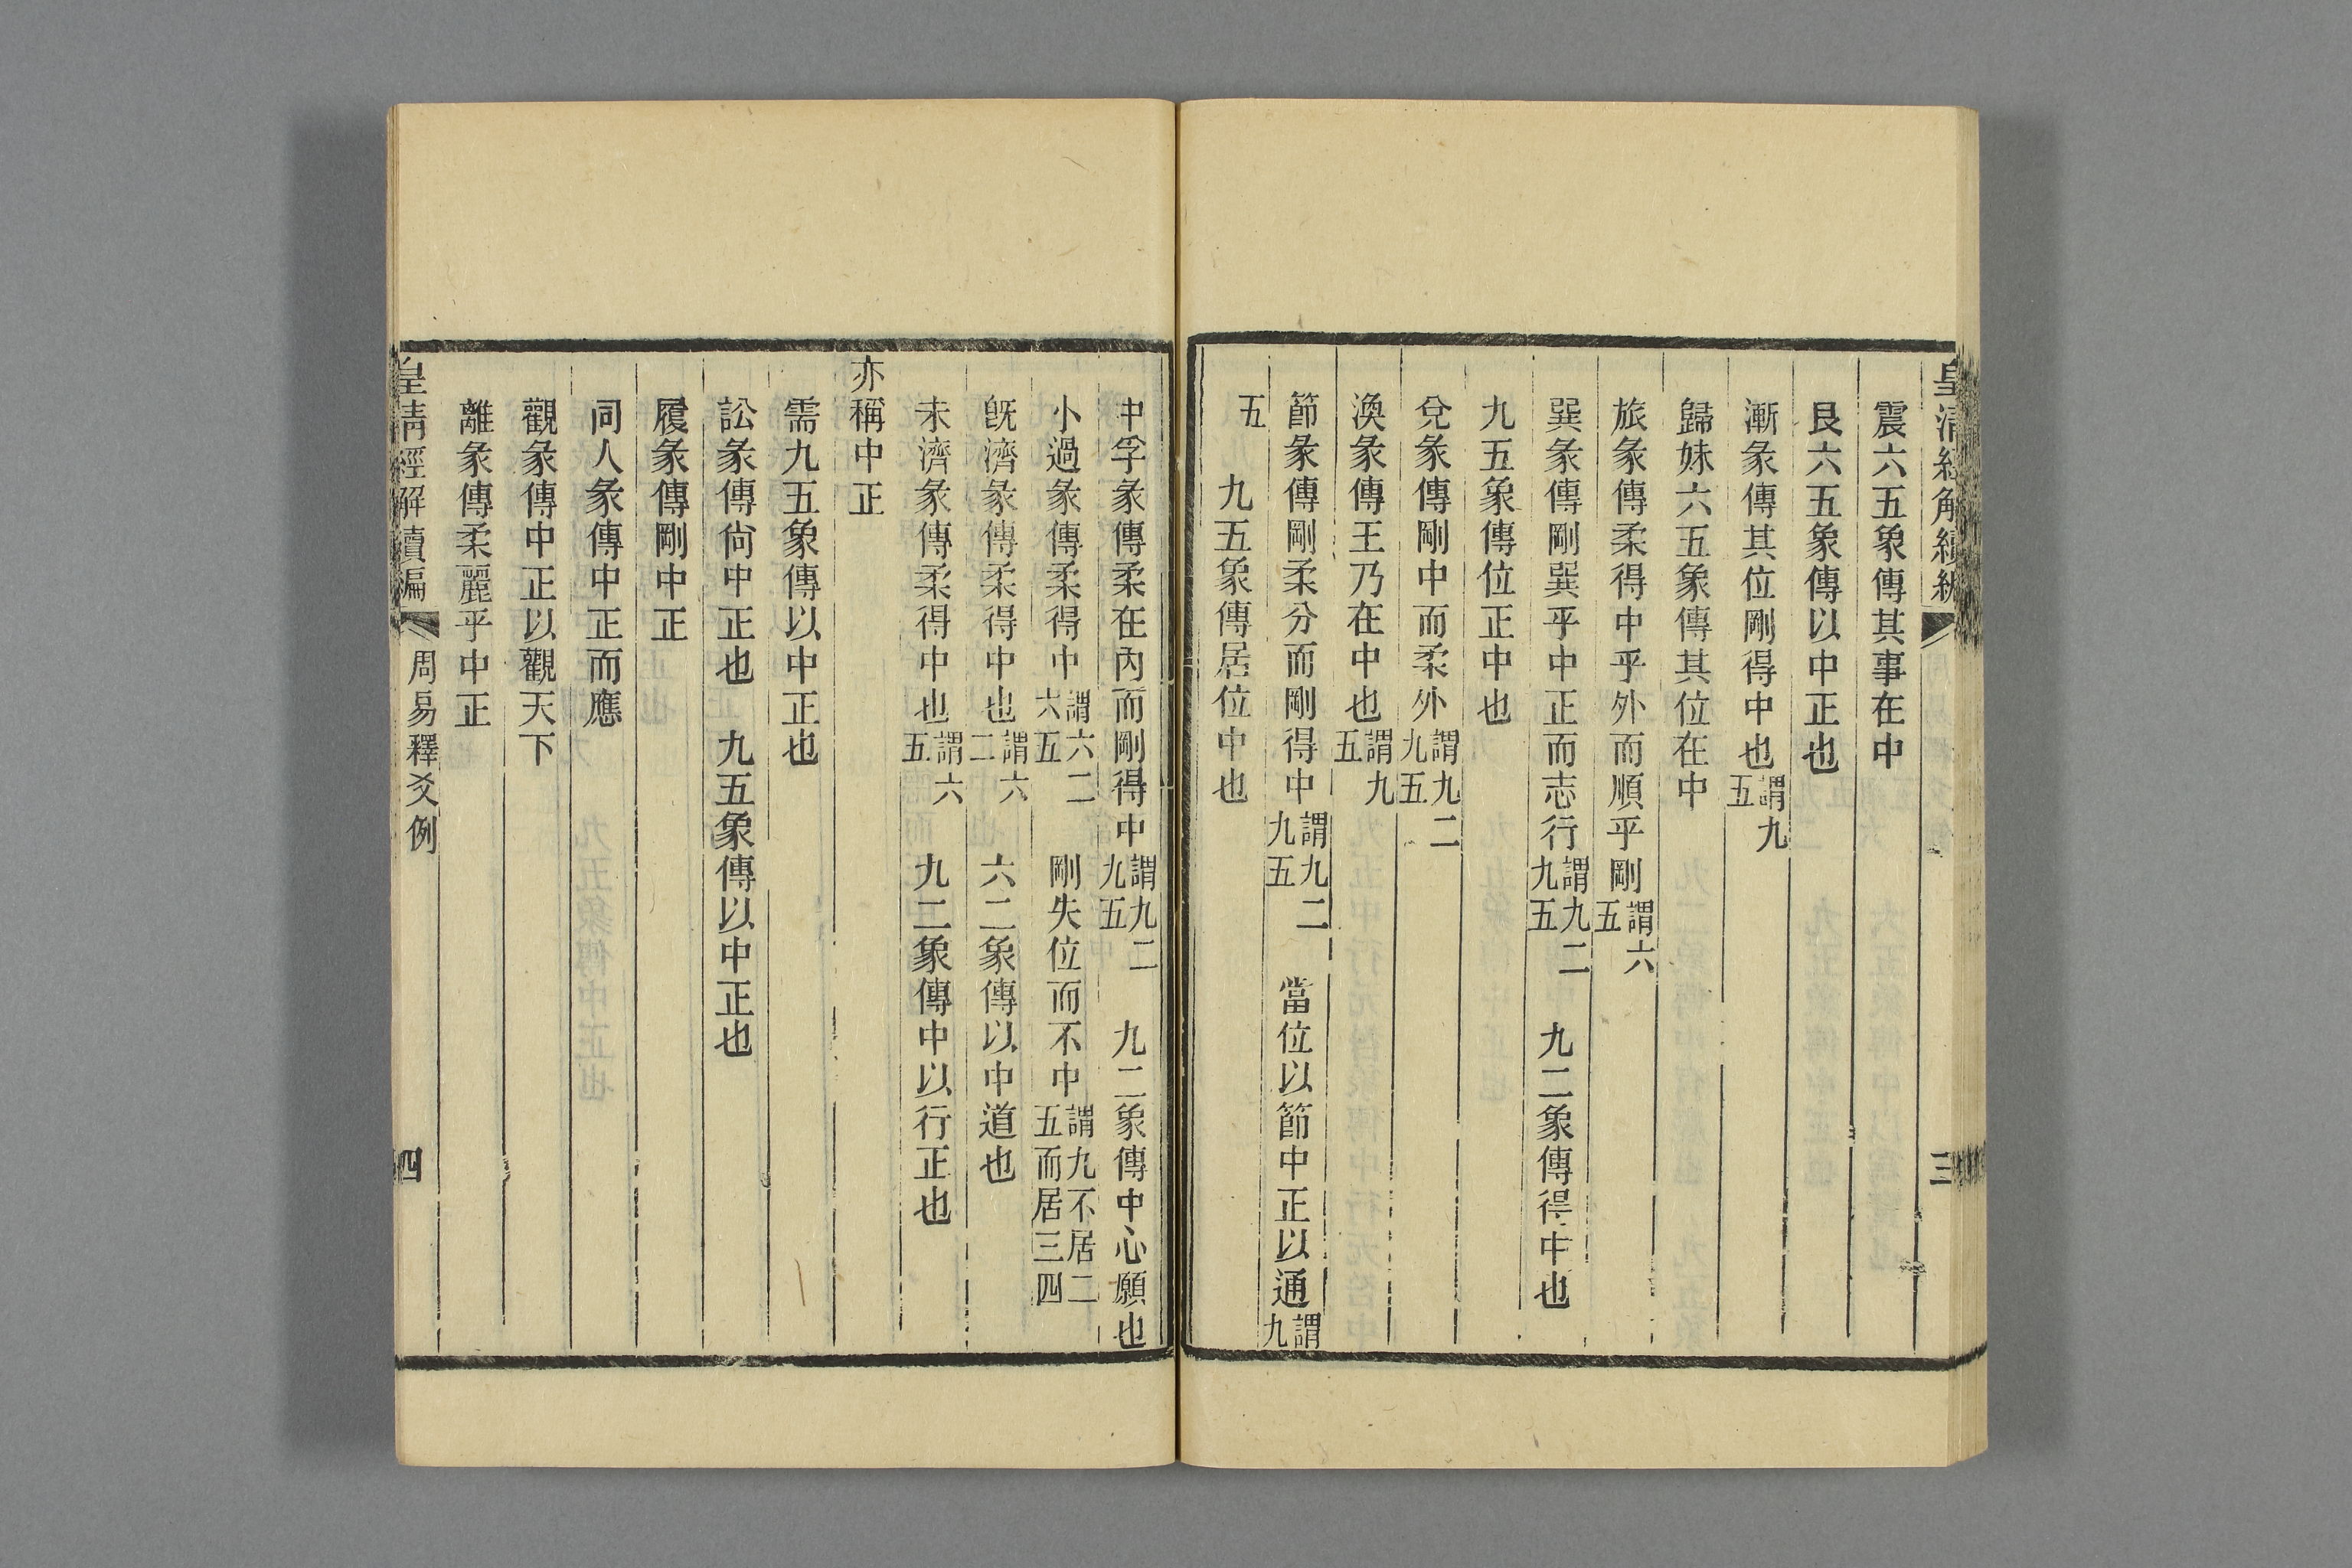 皇清經解續編
三
震六五象傳其事在中
艮六五象傳以中正也
漸彖傳其位剛得中也謂九五
歸妹六五象傳其位在中
旅彖傳柔得中乎外而順乎剛謂六五
巽彖傳剛巽乎中正而志行謂九二九五　九二象傳得中也
九五象傳位正中也
兌彖傳剛中而柔外謂九二九五
渙彖傳王乃在中也謂九五
節彖傳剛柔分而剛得中謂九二九五　當位以節中正以通謂九
五　九五象傳居位中也
中孚彖傳柔在內而剛得中謂九二九五　九二象傳中心願也
小過彖傳柔得中謂六二六五　剛失位而不中謂九不居二五而居三四
旣濟彖傳柔得中也謂六二　六二象傳以中道也
未濟彖傳柔得中也謂六五　九二象傳中以行正也
亦稱中正
需九五象傳以中正也
訟彖傳尙中正也　九五象傳以中正也
履彖傳剛中正
同人彖傳中正而應
觀彖傳中正以觀天下
離彖傳柔麗乎中正
皇清經解續編　周易釋爻例
四